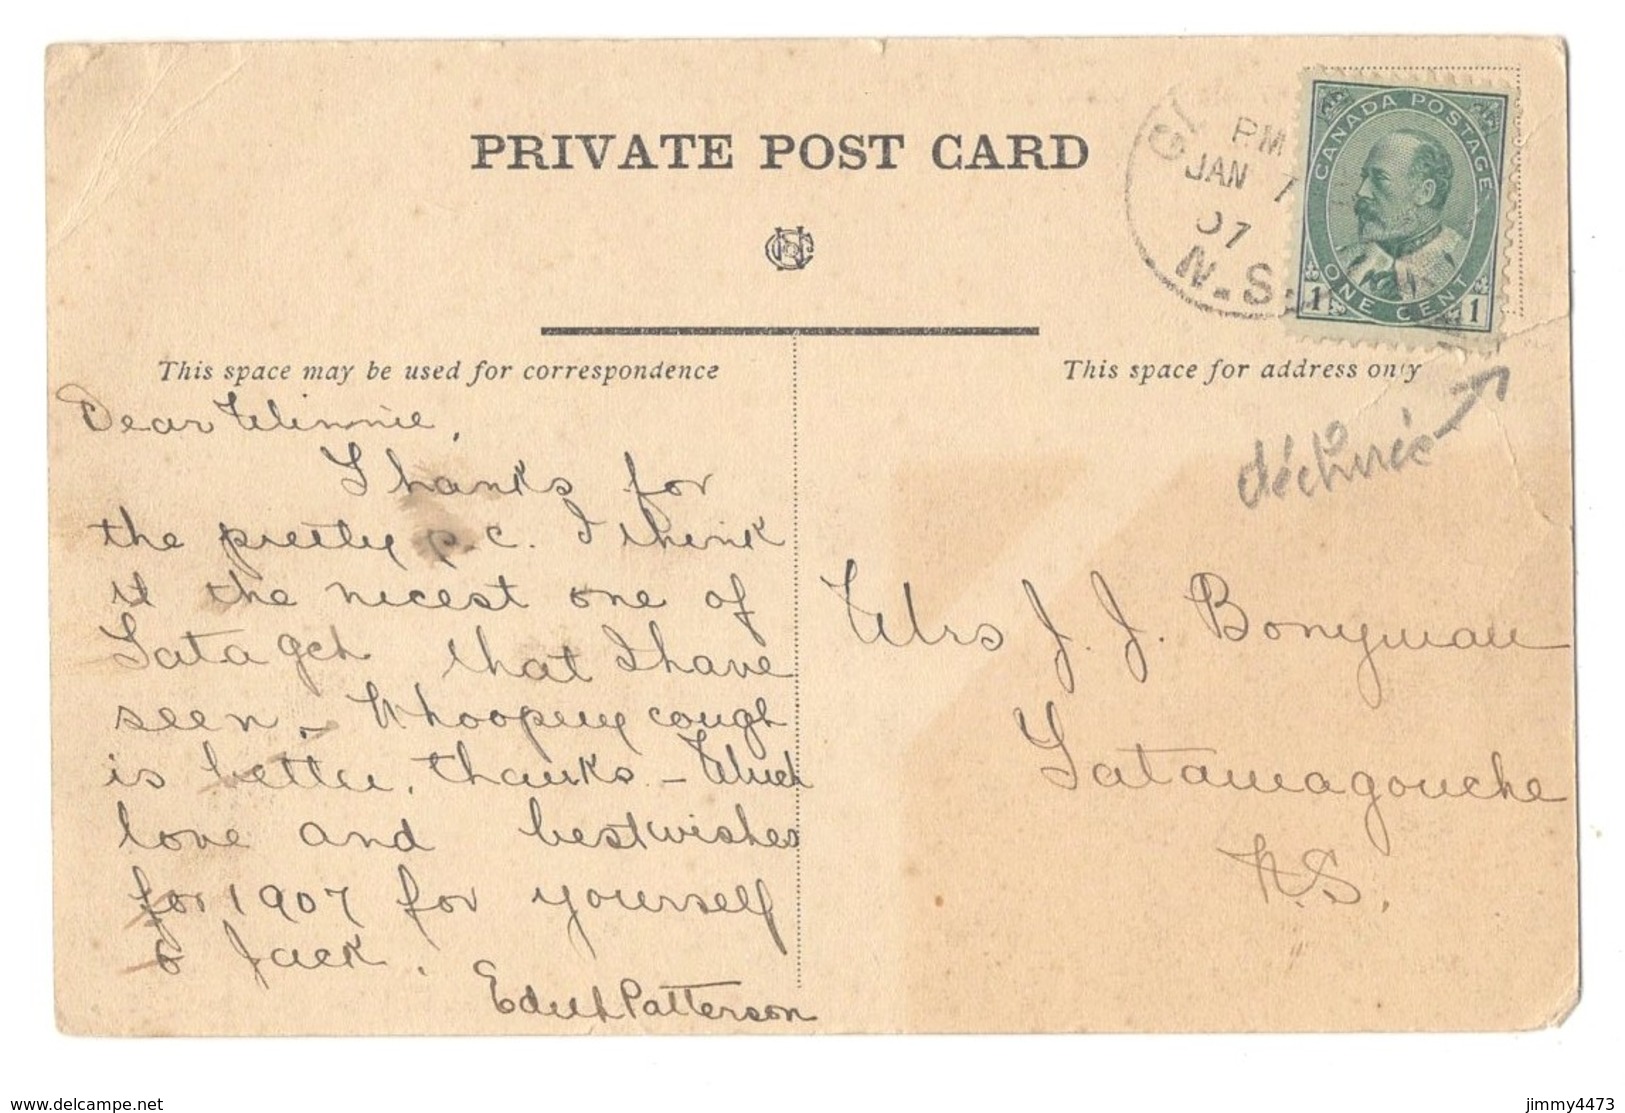 PRIVATE POST CARD
PM
JAN 7
07
N.S.
CANADA POSTAGE
ONE CENT
1 1
This space may be used for correspondence
This space for address only
déchirée
Dear Winnie,
Thanks for
the pretty p.c. I think
it the nicest one of
Tatagch that I have
seen. Whooping cough
is better, thanks. – Much
love and best wishes
for 1907 for yourself
& Jack.
Edith Patterson
Mrs J. J. Bonyman
Tatamagouche
N.S.
delcampe.net
jimmy4473